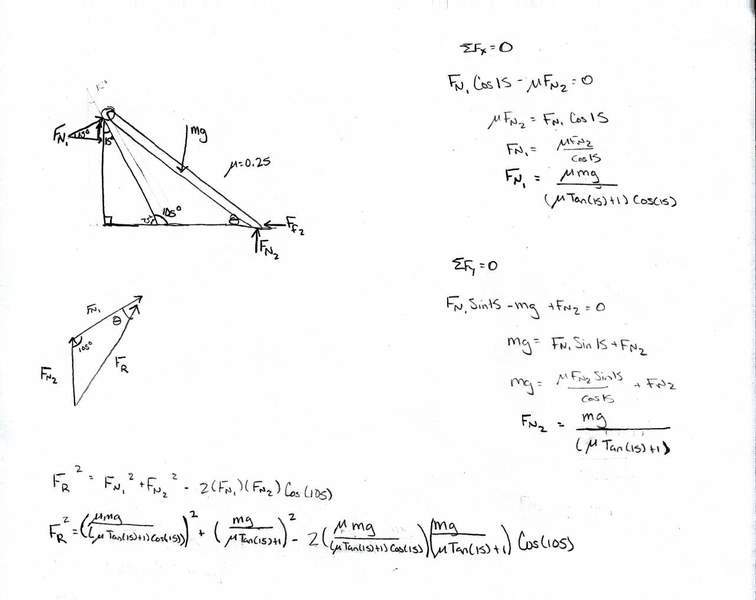 F_N₁
15
mg
μ=0.25
75°
105°
θ
F_f₂
F_N₂
F_N₁
θ
105°
F_N₂
F_R
ΣFx=0
F_N₁ Cos15 - μF_N₂ = 0
μF_N₂ = F_N₁ Cos15
F_N₁ = μF_N₂ / cos15
F_N₁ = μmg / (μTan(15)+1) Cos(15)
ΣFy=0
F_N₁ Sin15 - mg + F_N₂ = 0
mg = F_N₁ Sin15 + F_N₂
mg = μF_N₂ Sin15 / cos15 + F_N₂
F_N₂ = mg / (μTan(15)+1)
F_R² = F_N₁² + F_N₂² - 2(F_N₁)(F_N₂) Cos(105)
F_R² = (μmg / (μTan(15)+1)Cos(15))² + (mg / μTan(15)+1)² - 2(μmg / (μTan(15)+1)Cos(15))(mg / μTan(15)+1) Cos(105)